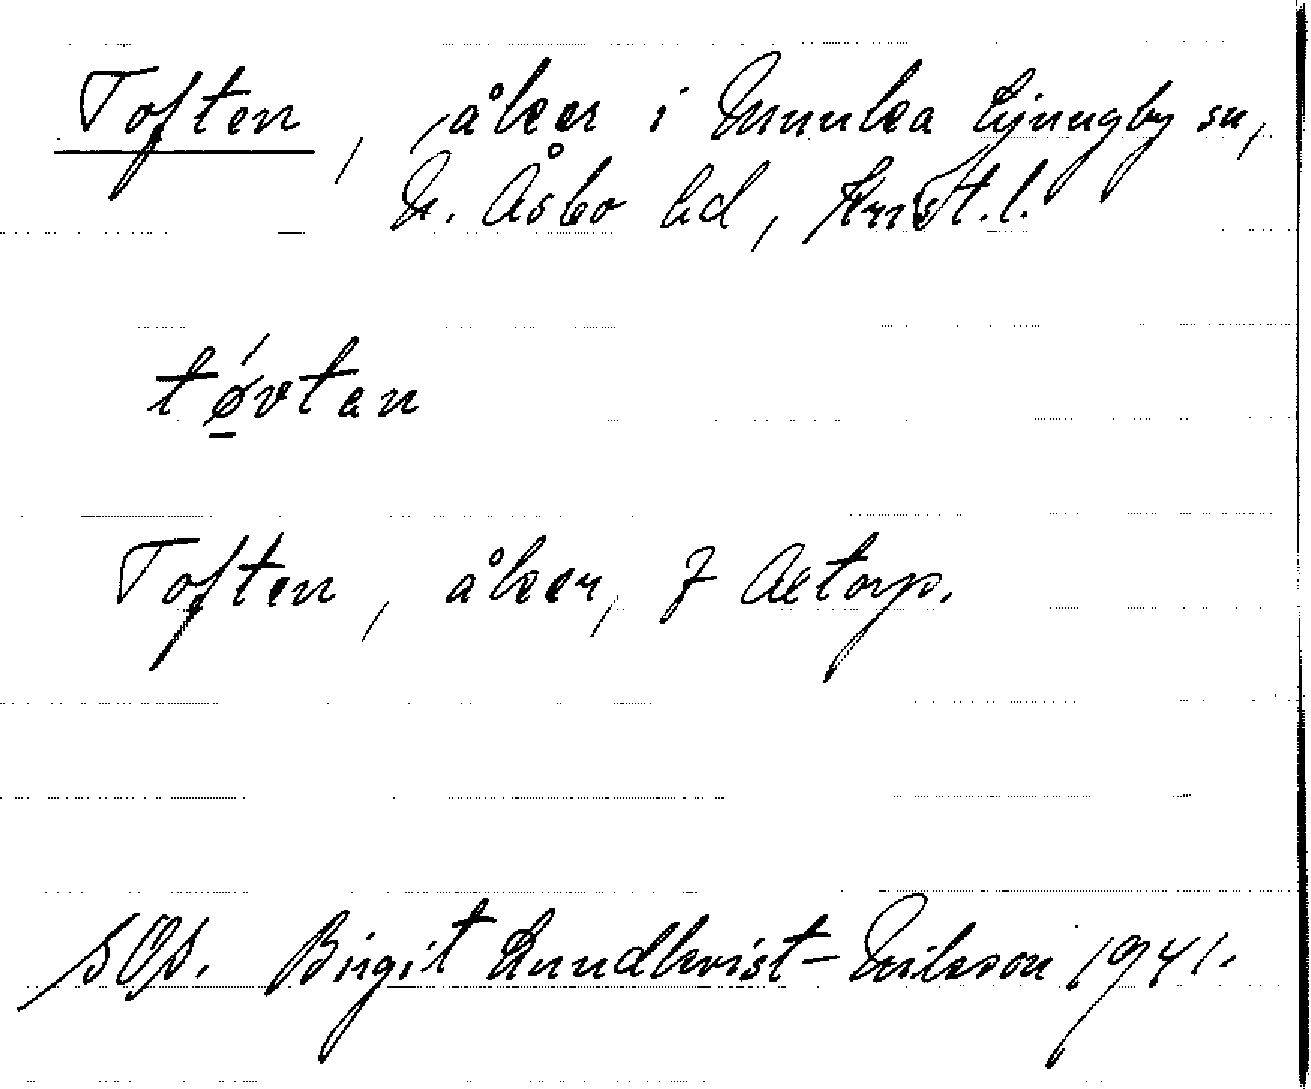 Toften, åker i Munka Ljungby sn,
N. Åsbo hd, Krist. l.
tǿ̱vtan
Toften, åker, f Aetorp.
SOA. Birgit Lundkvist-Nilsson 1941.